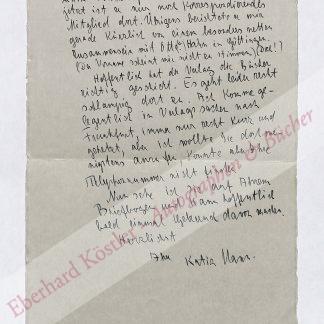 jetzt ist er nur noch korrespondierendes
Mitglied dort. Übrigens berichtete er mir
gerade kürzlich von einem besonders netten
Zusammensein mit Otto Hahn in Göttingen.
(Der Vorname scheint mir nicht zu stimmen
Hoffentlich hat der Verlag die Bücher
richtig geschickt. Es geht leider recht
schlampig dort zu. Ich komme ge-
legentlich in Verlagssachen nach
Frankfurt, immer nur recht kurz und
gehetzt, aber ich wollte Sie doch we-
nigstens anrufen, konnte aber Ihre
Telephonnummer nicht finden.
Nun sehe ich sie auf Ihrem
Briefbogen und kann hoffentlich
bald einmal Gebrauch davon machen.
Herzlichst
Ihre Katia Mann.
Eberhard Köstler Autographen & Bücher